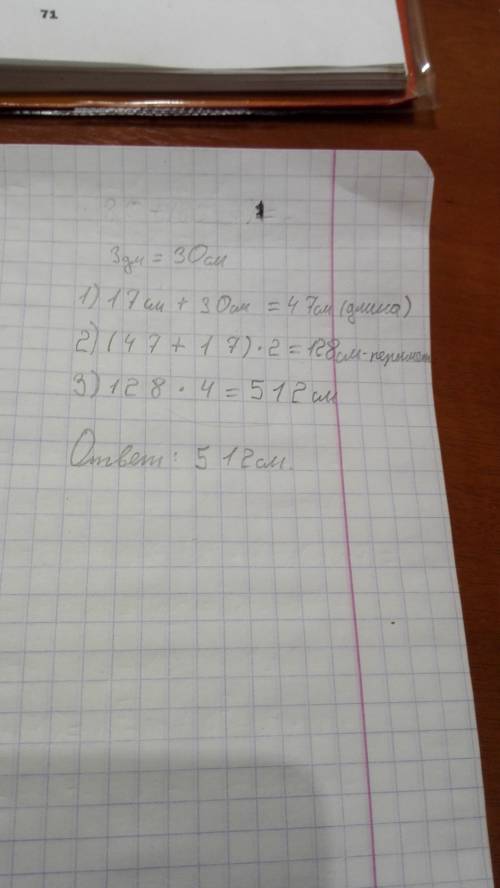 71
3дм = 30см
1) 17см + 30см = 47см (длина)
2) (47 + 17) · 2 = 128см-
3) 128 · 4 = 512см
Ответ: 512см.